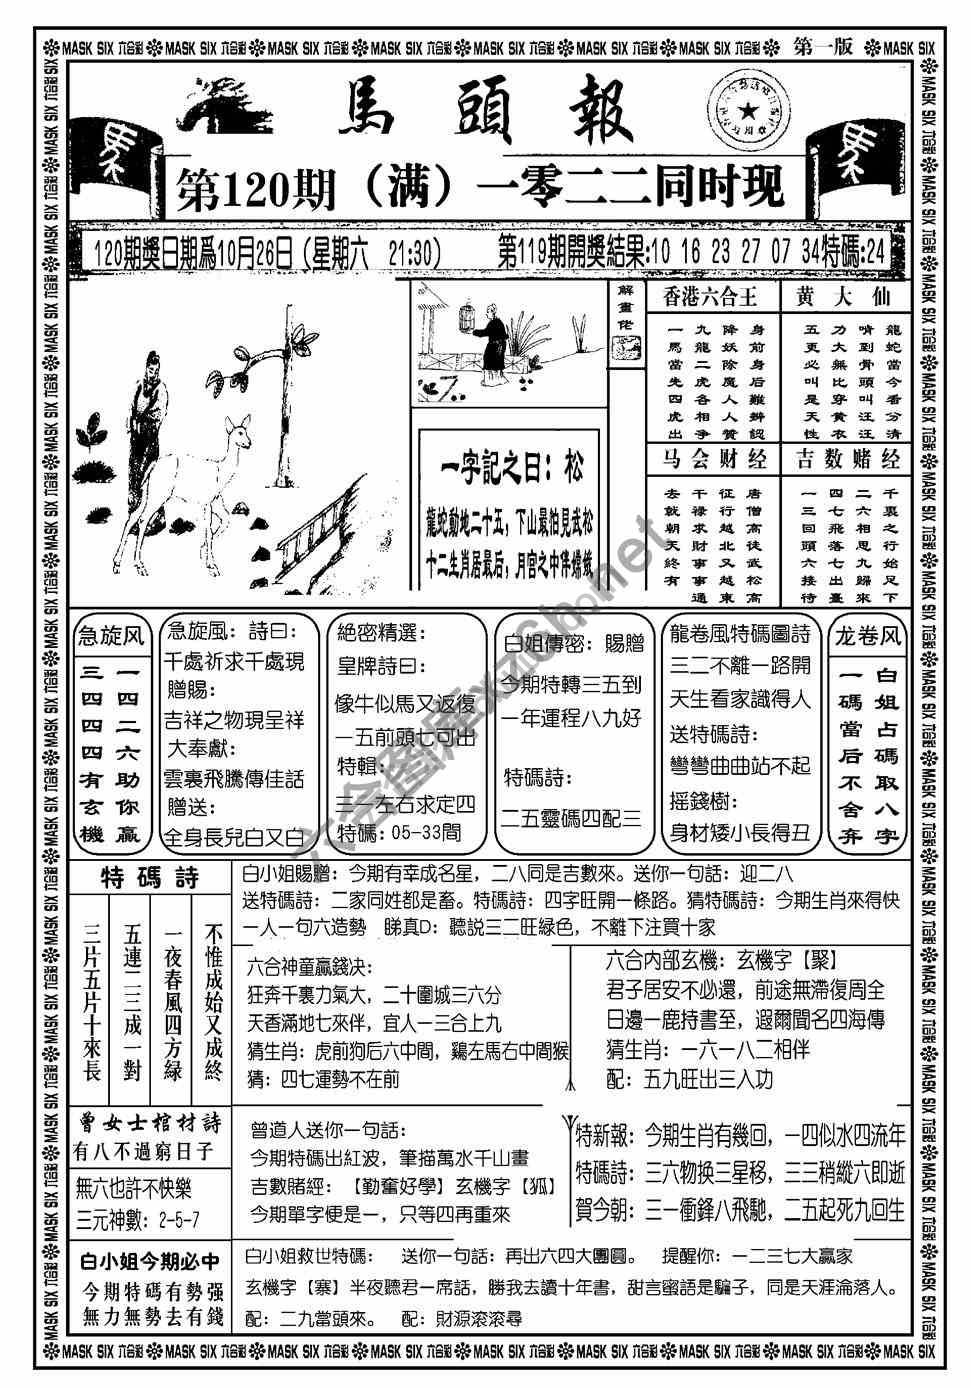 MASK SIX 六合彩 MASK SIX 六合彩 MASK SIX 六合彩 MASK SIX 六合彩 MASK SIX 六合彩 MASK SIX 六合彩 MASK SIX 六合彩 第一版 MASK SIX
馬頭報
第120期（满）一零二二同时现
120期獎日期爲10月26日（星期六 21:30） 第119期開獎結果:10 16 23 27 07 34特碼:24
解畫佬
一字記之曰：松
龍蛇動地二十五，下山最怕見武松
十二生肖居最后，月宫之中伴嫦娥
香港六合王
身前身后難辨認
降妖除魔人人贊
九龍二虎各相爭
一馬當先四虎出
黄大仙
龍蛇當今看分清
啃到骨頭叫汪汪
力大無比穿黄衣
五更必叫是天性
马会财经
唐僧高徒武松高
征行越北又越東
干祿求財事事通
去就朝天終有
吉数赌经
千裏之行始足下
二六相思九歸來
四七飛落七出臺
一三回頭六接待
急旋风
一四二六助你赢
三四四四有玄機
急旋風：詩曰：
千處祈求千處現
贈賜：
吉祥之物現呈祥
大奉獻：
雲裏飛騰傳佳話
贈送：
全身長兒白又白
絶密精選：
皇牌詩曰：
像牛似馬又返復
一五前頭七可出
特輯：
三一左右求定四
特碼：05-33間
白姐傳密：賜贈
今期特轉三五到
一年運程八九好
特碼詩：
二五靈碼四配三
龍卷風特碼圖詩
三二不離一路開
天生看家識得人
送特碼詩：
彎彎曲曲站不起
摇錢樹：
身材矮小長得丑
龙卷风
白姐占碼取八字
一碼當后不舍弃
特碼詩
不惟成始又成終
一夜春風四方緑
五連二三成一對
三片五片十來長
白小姐賜贈：今期有幸成名星，二八同是吉數來。送你一句話：迎二八
送特碼詩：二家同姓都是畜。特碼詩：四字旺開一條路。猜特碼詩：今期生肖來得快
一人一句六造勢 睇真D：聽説三二旺緑色，不離下注買十家
六合神童贏錢决：
狂奔千裏力氣大，二十圍城三六分
天香滿地七來伴，宜人一三合上九
猜生肖：虎前狗后六中間，鷄左馬右中間猴
猜：四七運勢不在前
六合内部玄機：玄機字【聚】
君子居安不必還，前途無滯復周全
日邊一鹿持書至，遐爾聞名四海傳
猜生肖：一六一八二相伴
配：五九旺出三入功
曾女士棺材詩
有八不過窮日子
無六也許不快樂
三元神數：2-5-7
曾道人送你一句話：
今期特碼出紅波，筆描萬水千山畫
吉數賭經：【勤奮好學】玄機字【狐】
今期單字便是一，只等四再重來
特新報：今期生肖有幾回，一四似水四流年
特碼詩：三六物换三星移，三三稍縱六即逝
賀今朝：三一衝鋒八飛馳，二五起死九回生
白小姐今期必中
今期特碼有勢强
無力無勢去有錢
白小姐救世特碼： 送你一句話：再出六四大團圓。 提醒你：一二三七大赢家
玄機字【寨】半夜聽君一席話，勝我去讀十年書，甜言蜜語是騙子，同是天涯淪落人。
配：二九當頭來。 配：財源滚滚尋
MASK SIX 六合彩 MASK SIX 六合彩 MASK SIX 六合彩 MASK SIX 六合彩 MASK SIX 六合彩 MASK SIX 六合彩 MASK SIX 六合彩 MASK SIX 六合彩 MASK SIX